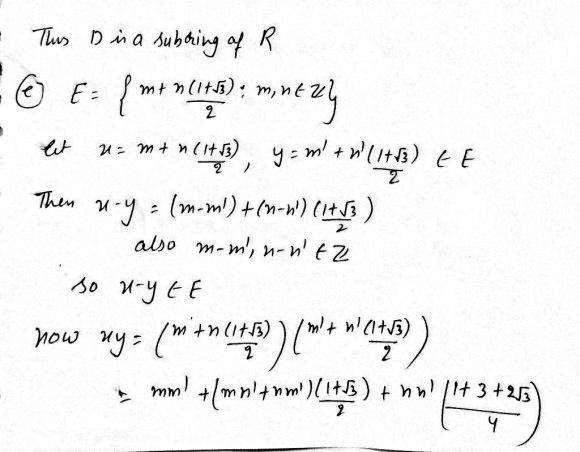 Thus D is a subring of R
(e) E = { m + n (1+√3)/2 : m, n ∈ ℤ }
let x = m + n (1+√3)/2, y = m' + n' (1+√3)/2 ∈ E
Then x-y = (m-m') + (n-n') (1+√3)/2
also m-m', n-n' ∈ ℤ
so x-y ∈ E
now xy = (m + n (1+√3)/2) (m' + n' (1+√3)/2)
= mm' + (mn' + nm') (1+√3)/2 + nn' (1+3+2√3)/4